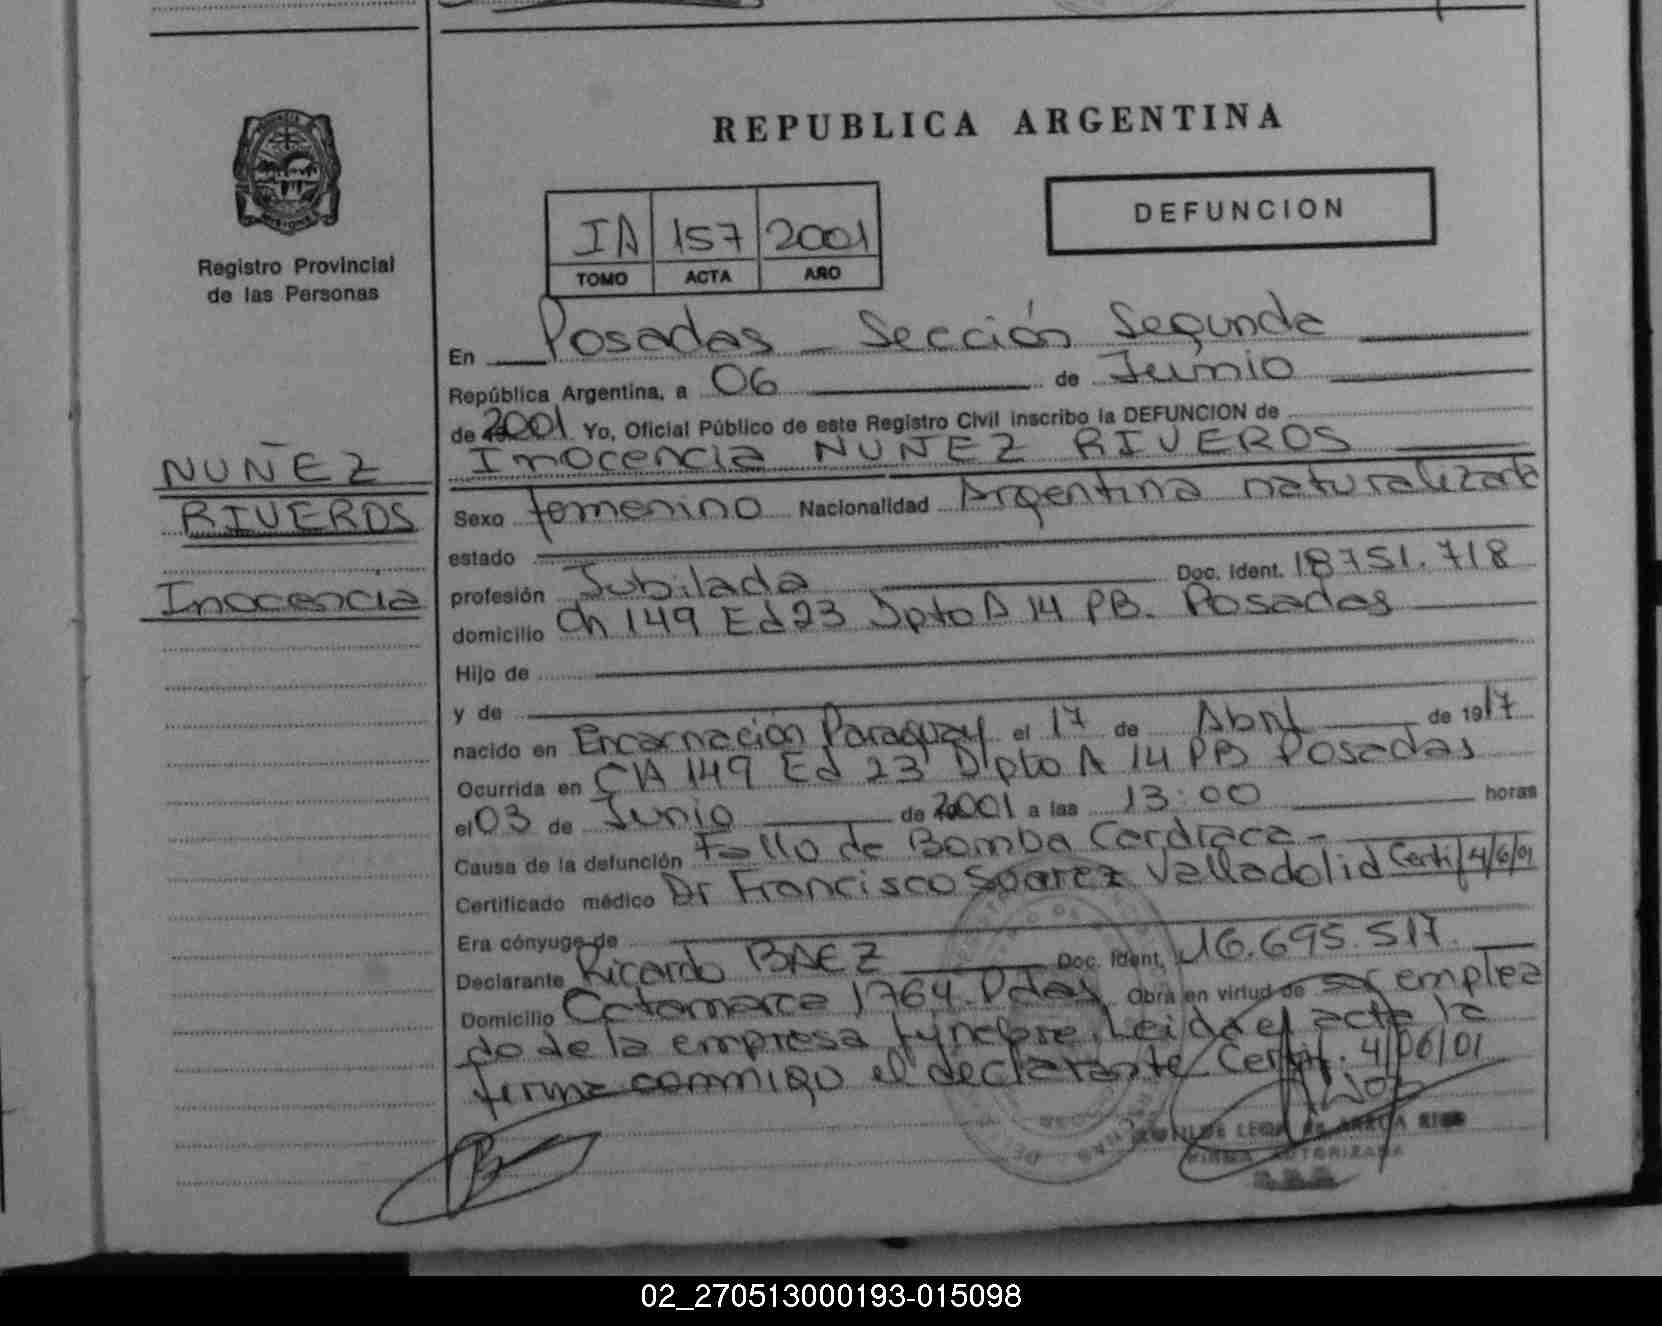 REPUBLICA ARGENTINA
DEFUNCION
IA 157 2001
TOMO ACTA AÑO
Registro Provincial
de las Personas
En Posadas - Sección Segunda
República Argentina, a 06 de Junio
de 2001 Yo, Oficial Público de este Registro Civil inscribo la DEFUNCION de
Inocencia NUÑEZ RIVEROS
NUÑEZ
RIVEROS
Inocencia
Sexo femenino Nacionalidad Argentina naturalizada
estado
profesión Jubilada Doc. Ident. 18751.718
domicilio Ch 149 Ed 23 Dpto A 14 PB. Posadas
Hijo de
y de
nacido en Encarnación Paraguay el 17 de Abril de 1917
Ocurrida en CH 149 Ed 23 Dpto A 14 PB Posadas
el 03 de Junio de 2001 a las 13:00 horas
Causa de la defunción Fallo de Bomba Cardiaca -
Certificado médico Dr Francisco Suarez Valladolid Certif 4/6/01
Era cónyuge de
Declarante Ricardo BAEZ Doc. Ident. 16.695.517.
Domicilio Catamarca 1764. Pdas Obra en virtud de ser emplea
do de la empresa fúnebre. Leida el acta la
firma conmigo el declarante Certif. 4/06/01
FIRMA AUTORIZADA
02_270513000193-015098